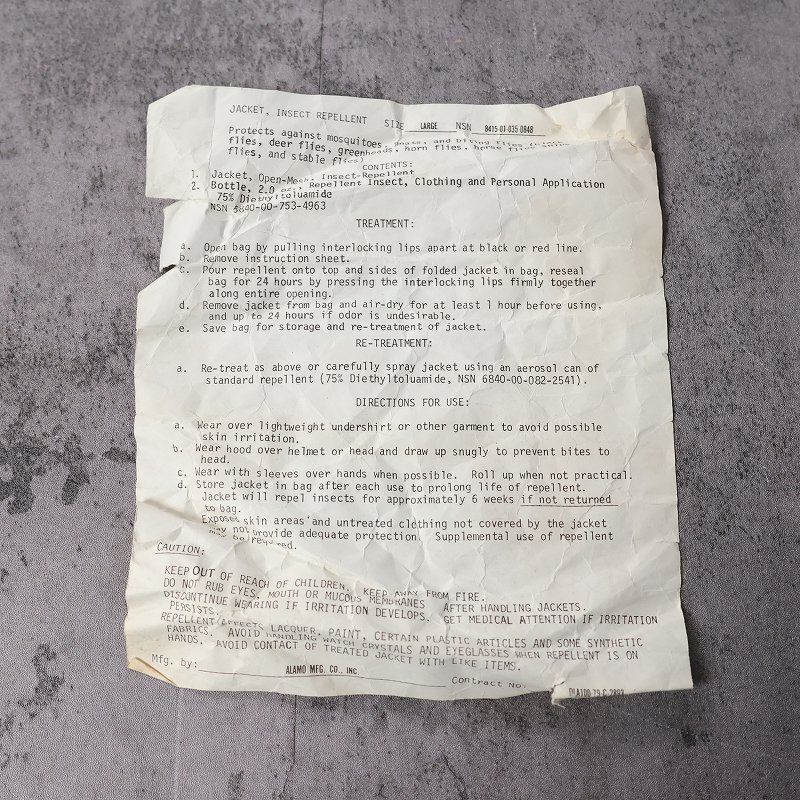 JACKET, INSECT REPELLENT SIZE LARGE NSN 8415-01-035 0848
Protects against mosquitoes, gnats, and biting flies
flies, deer flies, greenheads, horn flies, horse
flies, and stable flies)
CONTENTS:
1. Jacket, Open-Mesh, Insect-Repellent
2. Bottle, 2.0 oz., Repellent Insect, Clothing and Personal Application
75% Diethyltoluamide
NSN 6840-00-753-4963
TREATMENT:
a. Open bag by pulling interlocking lips apart at black or red line.
b. Remove instruction sheet.
c. Pour repellent onto top and sides of folded jacket in bag, reseal
bag for 24 hours by pressing the interlocking lips firmly together
along entire opening.
d. Remove jacket from bag and air-dry for at least 1 hour before using,
and up to 24 hours if odor is undesirable.
e. Save bag for storage and re-treatment of jacket.
RE-TREATMENT:
a. Re-treat as above or carefully spray jacket using an aerosol can of
standard repellent (75% Diethyltoluamide, NSN 6840-00-082-2541).
DIRECTIONS FOR USE:
a. Wear over lightweight undershirt or other garment to avoid possible
skin irritation.
b. Wear hood over helmet or head and draw up snugly to prevent bites to
head.
c. Wear with sleeves over hands when possible. Roll up when not practical.
d. Store jacket in bag after each use to prolong life of repellent.
Jacket will repel insects for approximately 6 weeks if not returned
to bag.
Exposed skin areas and untreated clothing not covered by the jacket
may not provide adequate protection. Supplemental use of repellent
may be required.
CAUTION:
KEEP OUT OF REACH OF CHILDREN. KEEP AWAY FROM FIRE.
DO NOT RUB EYES, MOUTH OR MUCOUS MEMBRANES AFTER HANDLING JACKETS.
DISCONTINUE WEARING IF IRRITATION DEVELOPS. GET MEDICAL ATTENTION IF IRRITATION
PERSISTS.
REPELLENT AFFECTS LACQUER, PAINT, CERTAIN PLASTIC ARTICLES AND SOME SYNTHETIC
FABRICS. AVOID HANDLING WATCH CRYSTALS AND EYEGLASSES WHEN REPELLENT IS ON
HANDS. AVOID CONTACT OF TREATED JACKET WITH LIKE ITEMS.
Mfg. by: ALAMO MFG. CO., INC. Contract No. DLA100-79-C-2893